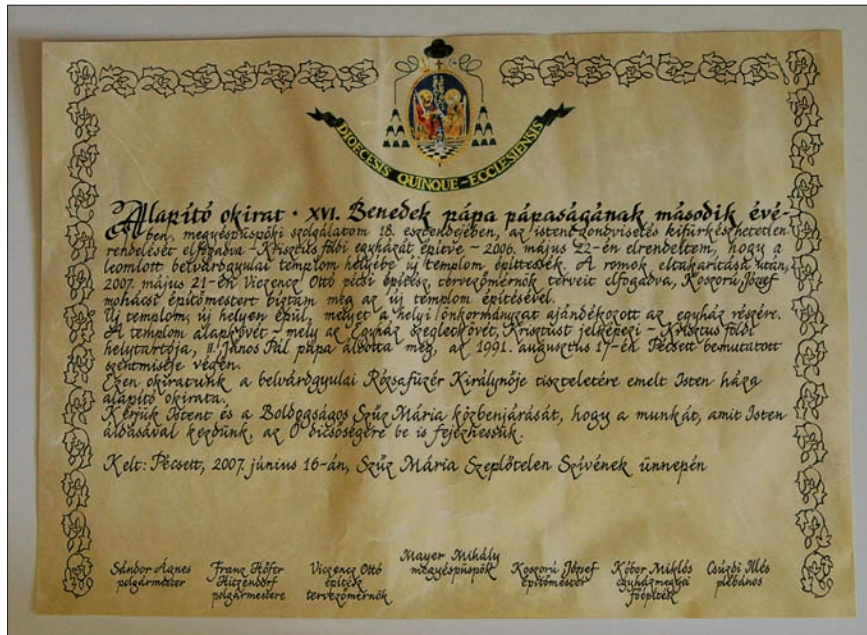 DIOECESIS QUINQUE-ECCLESIENSIS
Alapító okirat · XVI. Benedek pápa pápaságának második évé-
ben, megyéspüspöki szolgálatom 18. esztendejében, az isteni gondviselés kifürkészhetetlen
rendelését elfogadva - Krisztus földi egyházát építve - 2006. május 22-én elrendeltem, hogy a
leomlott belvárdgyulai templom helyébe új templom építtessék. A romok eltakarítása után,
2007. május 21-én Viczencz Ottó pécsi építész, tervezőmérnök terveit elfogadva, Koszorú József
mohácsi építőmestert bíztam meg az új templom építésével.
Új templom, új helyen épül, melyet a helyi önkormányzat ajándékozott az egyház részére.
A templom alapkövét - mely az Egyház szegletkövét, Krisztust jelképezi - Krisztus földi
helytartója, II. János Pál pápa áldotta meg, az 1991. augusztus 17-én Pécsett bemutatott
szentmiséje végén.
Ezen okiratunk a belvárdgyulai Rózsafüzér Királynője tiszteletére emelt Isten háza
alapító okirata.
Kérjük Istent és a Boldogságos Szűz Mária közbenjárását, hogy a munkát, amit Isten
áldásával kezdünk, az Ő dicsőségére be is fejezhessük.
Kelt: Pécsett, 2007. június 16-án, Szűz Mária Szeplőtelen Szívének ünnepén
Sándor Ágnes
polgármester
Franz Höfer
Hitzendorf
polgármestere
Viczencz Ottó
építész
tervezőmérnök
Mayer Mihály
megyéspüspök
Koszorú József
építőmester
Kóbor Miklós
egyházmegyei
főépítész
Csúzdi Illés
plébános